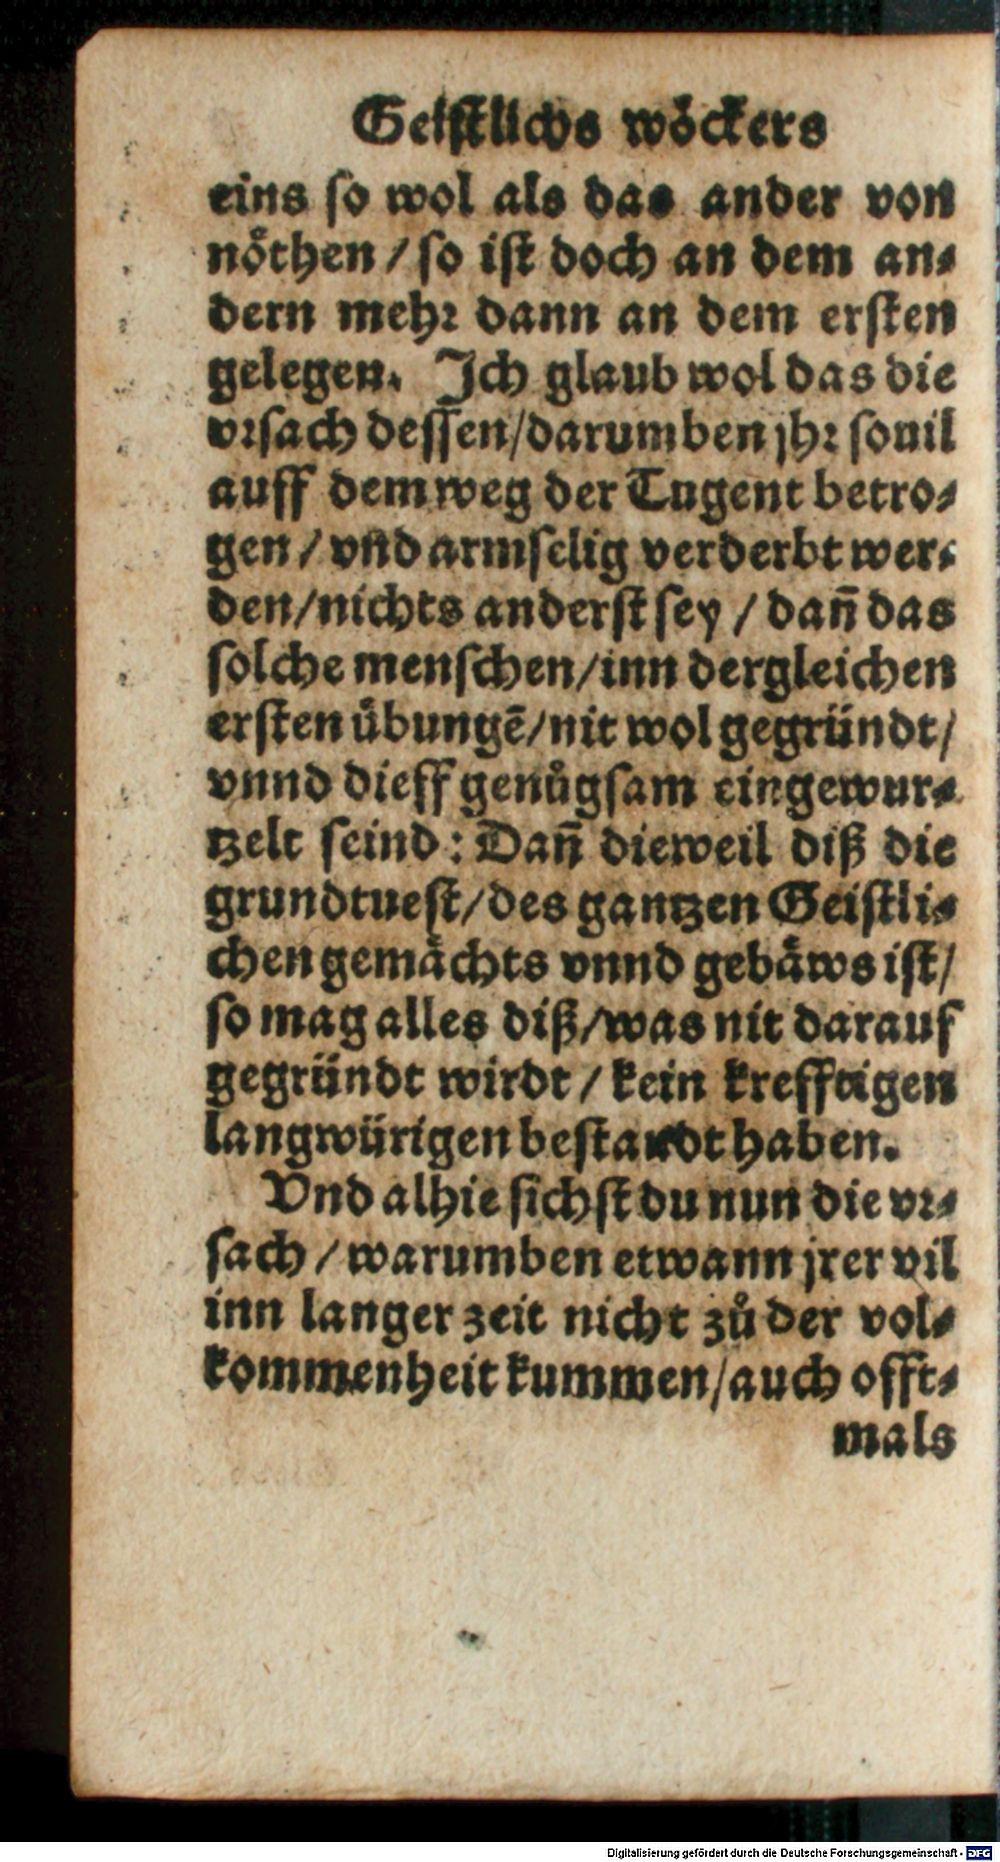 Geistlichs wöckers
eins so wol als das ander von
nöthen / so ist doch an dem an⸗
dern mehr dann an dem ersten
gelegen. Ich glaub wol das die
vrsach dessen/darumben jhr souil
auff dem weg der Tugent betro⸗
gen / vnd armselig verderbt wer⸗
den/nichts anderst sey / dañ das
solche menschen/inn dergleichen
ersten übungē/nit wol gegründt/
vnnd dieff genůgsam eingewur⸗
tzelt seind: Dañ dieweil diß die
grundtuest/des gantzen Geistli⸗
chen gemächts vnnd gebäws ist/
so mag alles diß/was nit darauf
gegründt wirdt / kein krefftigen
langwürigen bestandt haben.
Vnd alhie sichst du nun die vr⸗
sach / warumben etwann jrer vil
inn langer zeit nicht zů der vol⸗
kommenheit kummen/auch offt⸗
mals
Digitalisierung gefördert durch die Deutsche Forschungsgemeinschaft - DFG